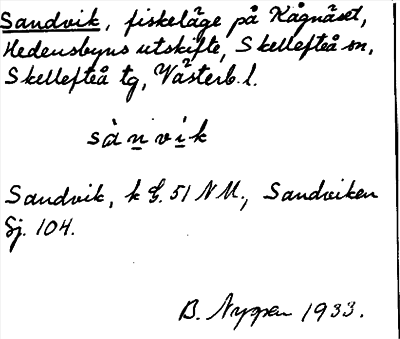 Sandvik, fiskeläge på Kågnäset,
Hedensbyns utskifte, Skellefteå sn,
Skellefteå tg, Västerb. l.
sànvik
Sandvik, k G. 51 N M., Sandviken
Sj. 104.
B. Nygren 1933.